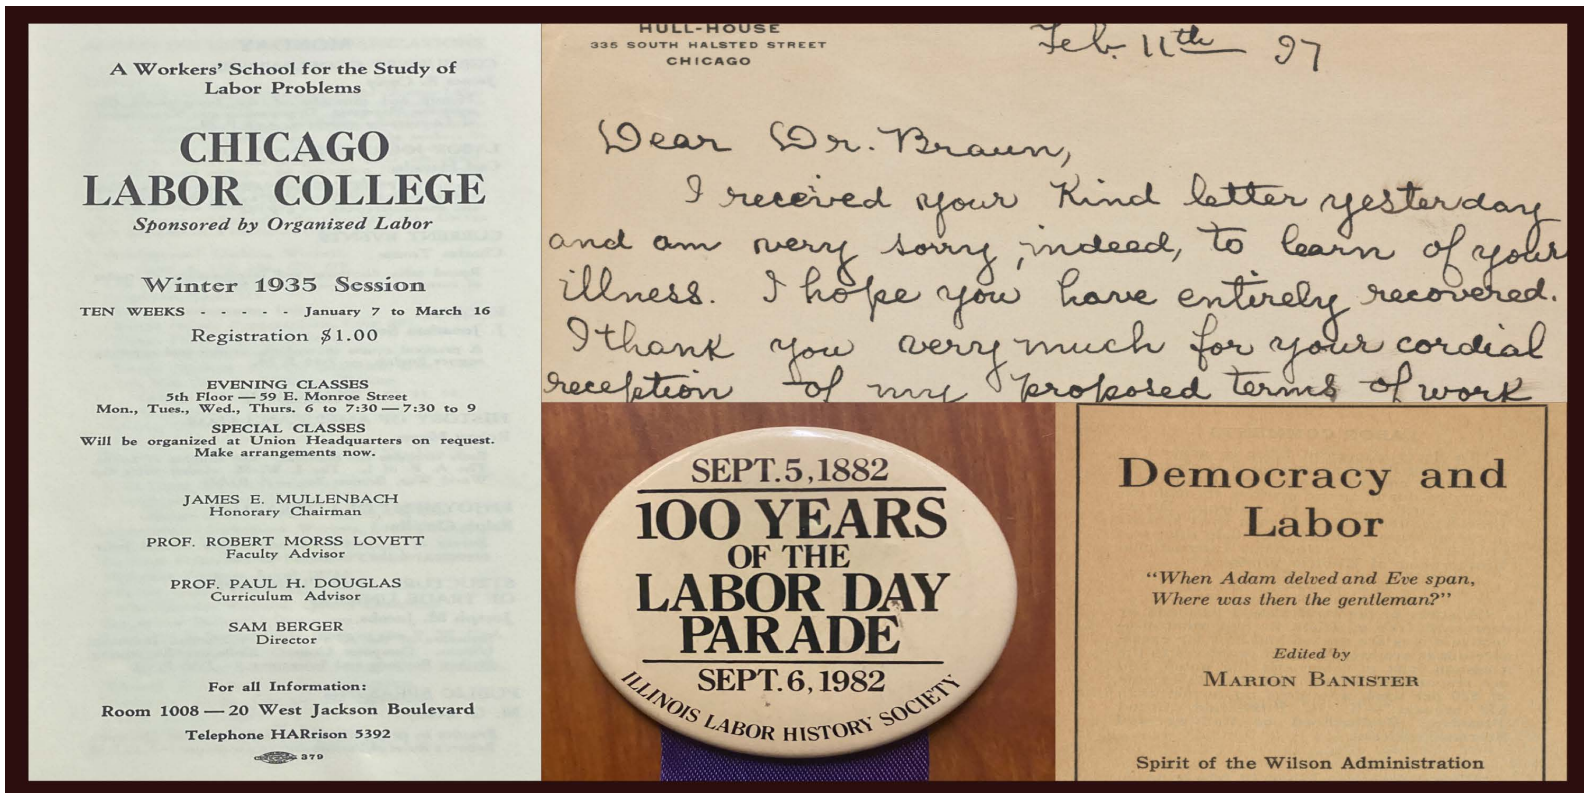 A Workers' School for the Study of
Labor Problems
CHICAGO
LABOR COLLEGE
Sponsored by Organized Labor
Winter 1935 Session
TEN WEEKS - - - - - January 7 to March 16
Registration $1.00
EVENING CLASSES
5th Floor — 59 E. Monroe Street
Mon., Tues., Wed., Thurs. 6 to 7:30 — 7:30 to 9
SPECIAL CLASSES
Will be organized at Union Headquarters on request.
Make arrangements now.
JAMES E. MULLENBACH
Honorary Chairman
PROF. ROBERT MORSS LOVETT
Faculty Advisor
PROF. PAUL H. DOUGLAS
Curriculum Advisor
SAM BERGER
Director
For all Information:
Room 1008 — 20 West Jackson Boulevard
Telephone HARrison 5392
379
HULL-HOUSE
335 SOUTH HALSTED STREET
CHICAGO
Feb. 11th 97
Dear Dr. Braun,
I received your kind letter yesterday
and am very sorry, indeed, to learn of your
illness. I hope you have entirely recovered.
I thank you very much for your cordial
reception of my proposed terms of work
SEPT. 5, 1882
100 YEARS
OF THE
LABOR DAY
PARADE
SEPT. 6, 1982
ILLINOIS LABOR HISTORY SOCIETY
Democracy and
Labor
"When Adam delved and Eve span,
Where was then the gentleman?"
Edited by
MARION BANISTER
Spirit of the Wilson Administration